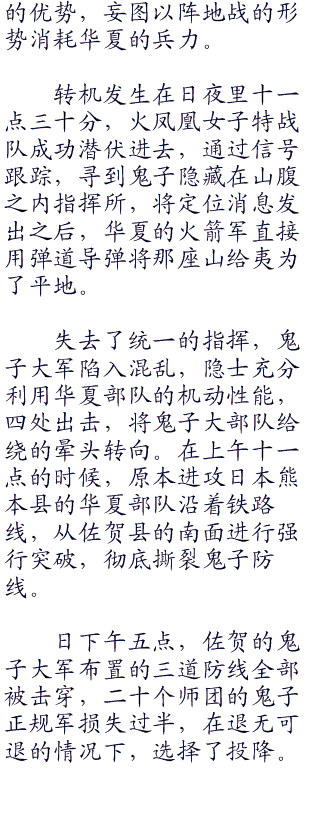 的优势，妄图以阵地战的形
势消耗华夏的兵力。
转机发生在日夜里十一
点三十分，火凤凰女子特战
队成功潜伏进去，通过信号
跟踪，寻到鬼子隐藏在山腹
之内指挥所，将定位消息发
出之后，华夏的火箭军直接
用弹道导弹将那座山给夷为
了平地。
失去了统一的指挥，鬼
子大军陷入混乱，隐士充分
利用华夏部队的机动性能，
四处出击，将鬼子大部队给
绕的晕头转向。在上午十一
点的时候，原本进攻日本熊
本县的华夏部队沿着铁路
线，从佐贺县的南面进行强
行突破，彻底撕裂鬼子防
线。
日下午五点，佐贺的鬼
子大军布置的三道防线全部
被击穿，二十个师团的鬼子
正规军损失过半，在退无可
退的情况下，选择了投降。